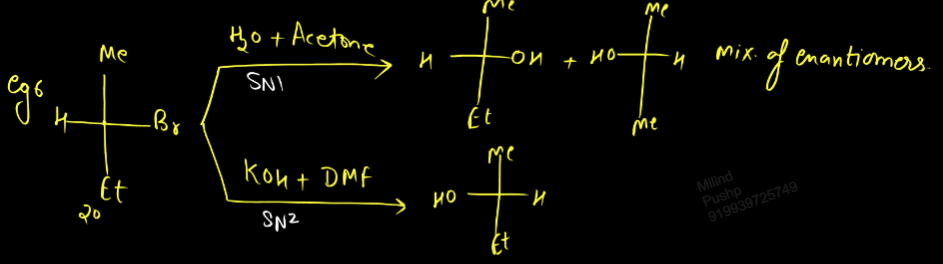 eg6
Me
H
Br
Et
2°
H₂O + Acetone
SN1
Me
H
OH
Et
+
Me
HO
H
Me
mix. of enantiomers.
KOH + DMF
SN2
Me
HO
H
Et
Milind
Pushp
919939725749